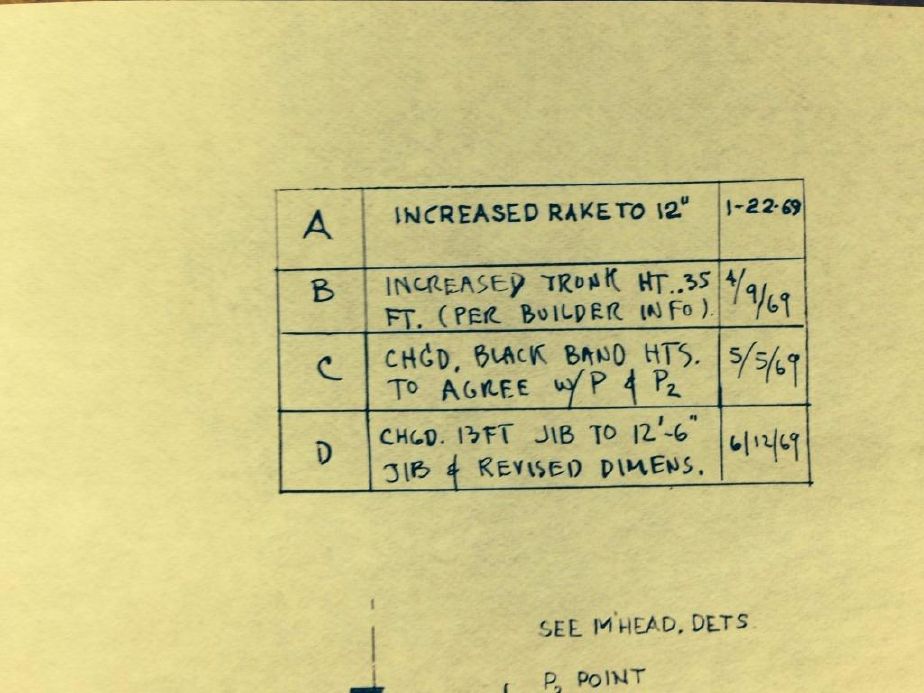 A INCREASED RAKE TO 12" 1-22-69
B INCREASED TRUNK HT. .35 4/9/69
FT. (PER BUILDER INFO).
C CHGD. BLACK BAND HTS. 5/5/69
TO AGREE W/P & P2
D CHGD. 13FT JIB TO 12'-6" 6/12/69
JIB & REVISED DIMENS.
SEE M'HEAD. DETS.
P2 POINT